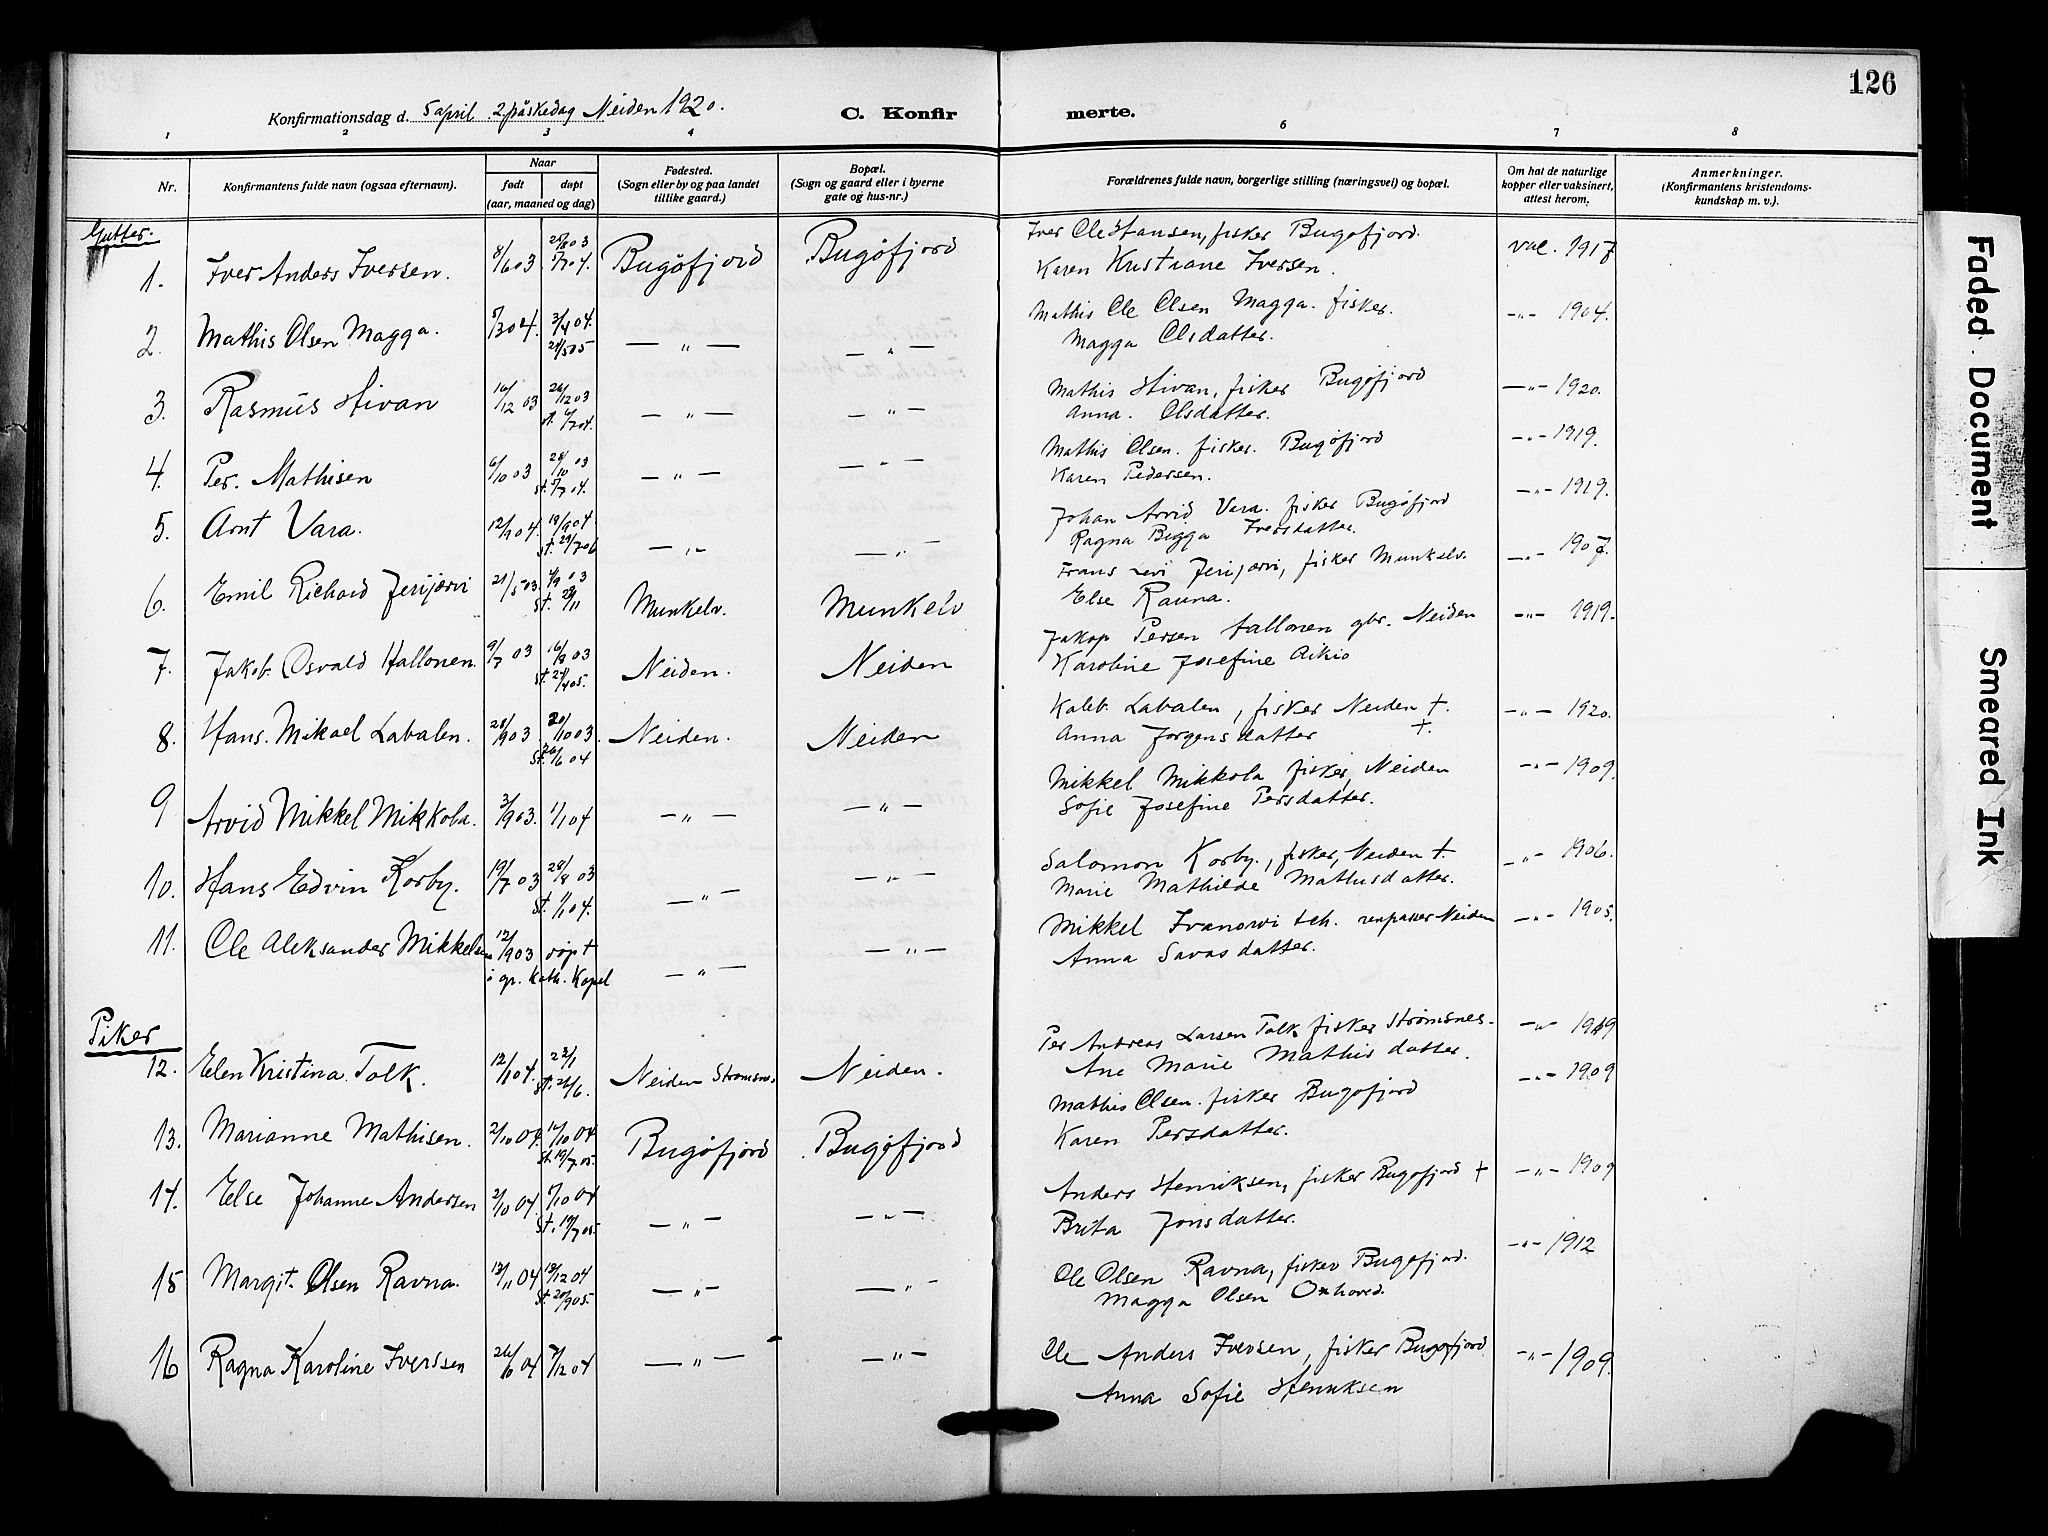 126
Konfirmationsdag d. 5 april 2 påskedag Neiden 1920. C. Konfirmerte.
1 2 3 4 6 7 8
Nr. Konfirmantens fulde navn (ogsaa efternavn). Naar født døpt (aar, maaned og dag) Fødested. (Sogn eller by og paa landet tillike gaard.) Bopæl. (Sogn og gaard eller i byerne gate og hus-nr.) Forældrenes fulde navn, borgerlige stilling (næringsvei) og bopæl. Om hat de naturlige kopper eller vaksinert, attest herom. Anmerkninger. (Konfirmantens kristendomskundskap m. v.).
Gutter.
1. Iver Anders Iversen. 8/6 03 Bugøfjord Bugøfjord Iver Ole Hansen, fisker Bugøfjord. vac. 1917
Karen Kristiane Iversen.
2. Mathis Olsen Magga. 5/3 04. 3/4 04. 21/5 05 — " — — " — Mathis Ole Olsen Magga. fisker. — " — 1904.
Magga Olsdatter.
3. Rasmus Hivan 16/12 03 26/12 03 — " — — " — Mathis Hivan, fisker Bugøfjord — " — 1920.
Anna. Olsdatter.
4. Per. Mathisen 6/10 03 28/10 03 st. 7/7 04. — " — — " — Mathis Olsen. fisker. Bugøfjord — " — 1919.
Karen Pedersen.
5. Arnt Vara. 12/9 04. 18/9 04 st. 29/7 06 — " — — " — Johan Arvid Vara. fisker Bugøfjord — " — 1919.
Ragna Bigga Iversdatter.
6. Emil Richard Jerijærvi 21/5 03. 4/9 03 st. 28/11 Munkelv. Munkelv Frans Levi Jerijærvi, fisker Munkelv. — " — 1907.
Else Rauna.
7. Jakob. Osvald Hallonen. 9/7 03 16/8 03 st. 24/4 05. Neiden. Neiden Jakop Persen Hallonen gbr. Neiden — " — 1919.
Karoline Josefine Aikio
8. Hans. Mikael Labalen. 28/9 03 20/10 03. st. 26/6 04 Neiden. Neiden Kaleb. Labalen, fisker Neiden †. — " — 1920.
Anna Jorgensdatter †.
9 Arvid Mikkel Mikkola. 3/9 03. 1/1 04 — " — — " — Mikkel Mikkola fisker, Neiden — " — 1909.
Sofie Josefine Persdatter.
10. Hans Edvin Korby. 19/7 03 28/8 03 st. 1/1 04. — " — — " — Salomon Korby., fisker, Neiden †. — " — 1906.
Marie Mathilde Mathisdatter.
11. Ole Aleksander Mikkelsen 12/9 03 døpt i gr. Kath. Kapel — " — — " — Mikkel Ivanowitch. Neiden — " — 1905.
Anna Savasdatter.
Piker
12. Elen Kristina Tolk. 12/1 04. 22/1 st. 26/6. Neiden Strømsnes Neiden. Per Andreas Larsen Tolk fisker Strømsnes. — " — 1919
Ane Marie Mathisdatter.
13. Marianne Mathisen. 2/10 04. 16/10 04 st. 19/7 05. Bugøfjord Bugøfjord Mathis Olsen. fisker Bugøfjord — " — 1909
Karen Persdatter.
14. Else Johanne Andersen 2/10 04. st. 19/7 05. — " — — " — Anders Henriksen, fisker Bugøfjord † — " — 1909
Brita Jonsdatter.
15 Margit. Olsen Ravna. 13/11 04 18/12 04 st. 20/9 05. — " — — " — Ole Olsen Ravna, fisker Bugøfjord. — " — 1912
Magga Olsen Oxhoved.
16 Ragna Karoline Iverssen 7/12 04 — " — — " — Ole Anders Iversen, fisker Bugøfjord — " — 1909.
Anna Sofie Henriksen
Faded Document
Smeared Ink